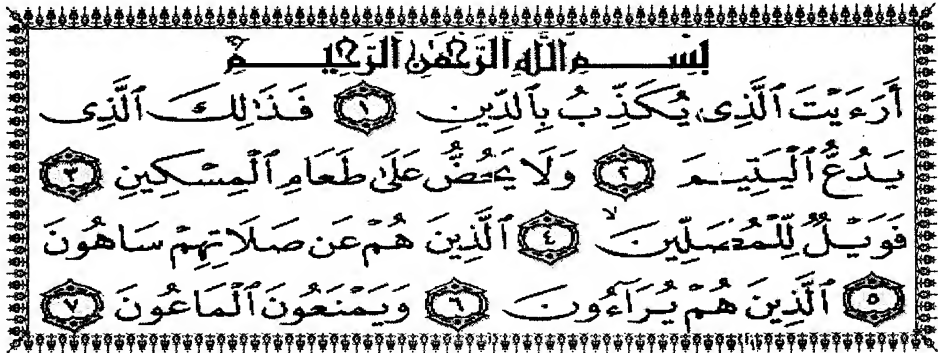 بِسْمِ ٱللَّهِ ٱلرَّحْمَٰنِ ٱلرَّحِيمِ
أَرَءَيْتَ ٱلَّذِى يُكَذِّبُ بِٱلدِّينِ ١ فَذَٰلِكَ ٱلَّذِى
يَدُعُّ ٱلْيَتِيمَ ٢ وَلَا يَحُضُّ عَلَىٰ طَعَامِ ٱلْمِسْكِينِ ٣
فَوَيْلٌ لِّلْمُصَلِّينَ ٤ ٱلَّذِينَ هُمْ عَن صَلَاتِهِمْ سَاهُونَ
٥ ٱلَّذِينَ هُمْ يُرَآءُونَ ٦ وَيَمْنَعُونَ ٱلْمَاعُونَ ٧